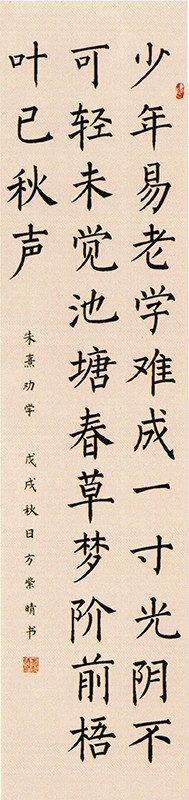 少年易老学难成一寸光阴不
可轻未觉池塘春草梦阶前梧
叶已秋声
朱熹劝学 戊戌秋日方紫晴书